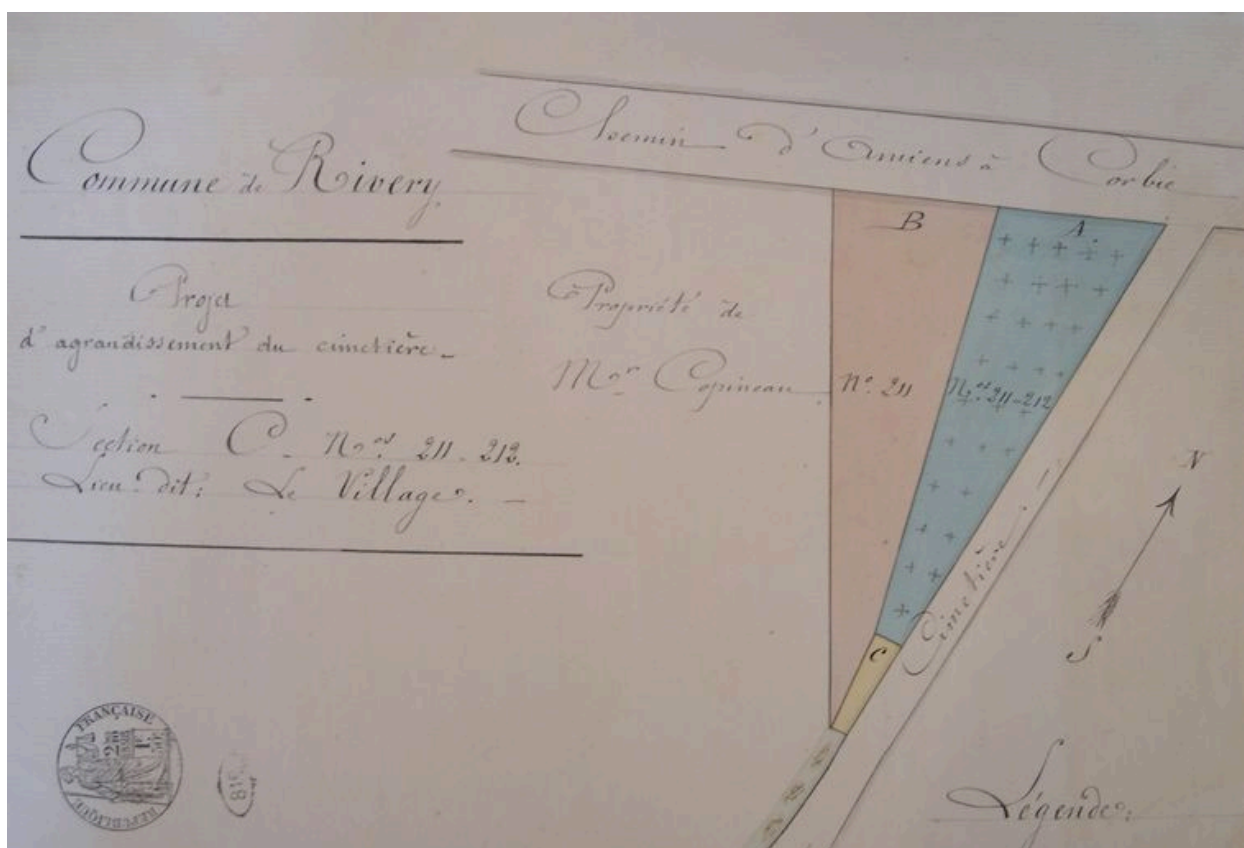 Commune de Rivery.
Projet
d'agrandissement du cimetière.
Section C. Nos 211-212.
Lieu-dit: Le Village.
Chemin d'Amiens à Corbie
Propriété de
Mr Copineau.
B
A.
No. 211
Nos. 211-212
C
Cimetière
N
S
Légende:
RÉPUBLIQUE FRANÇAISE